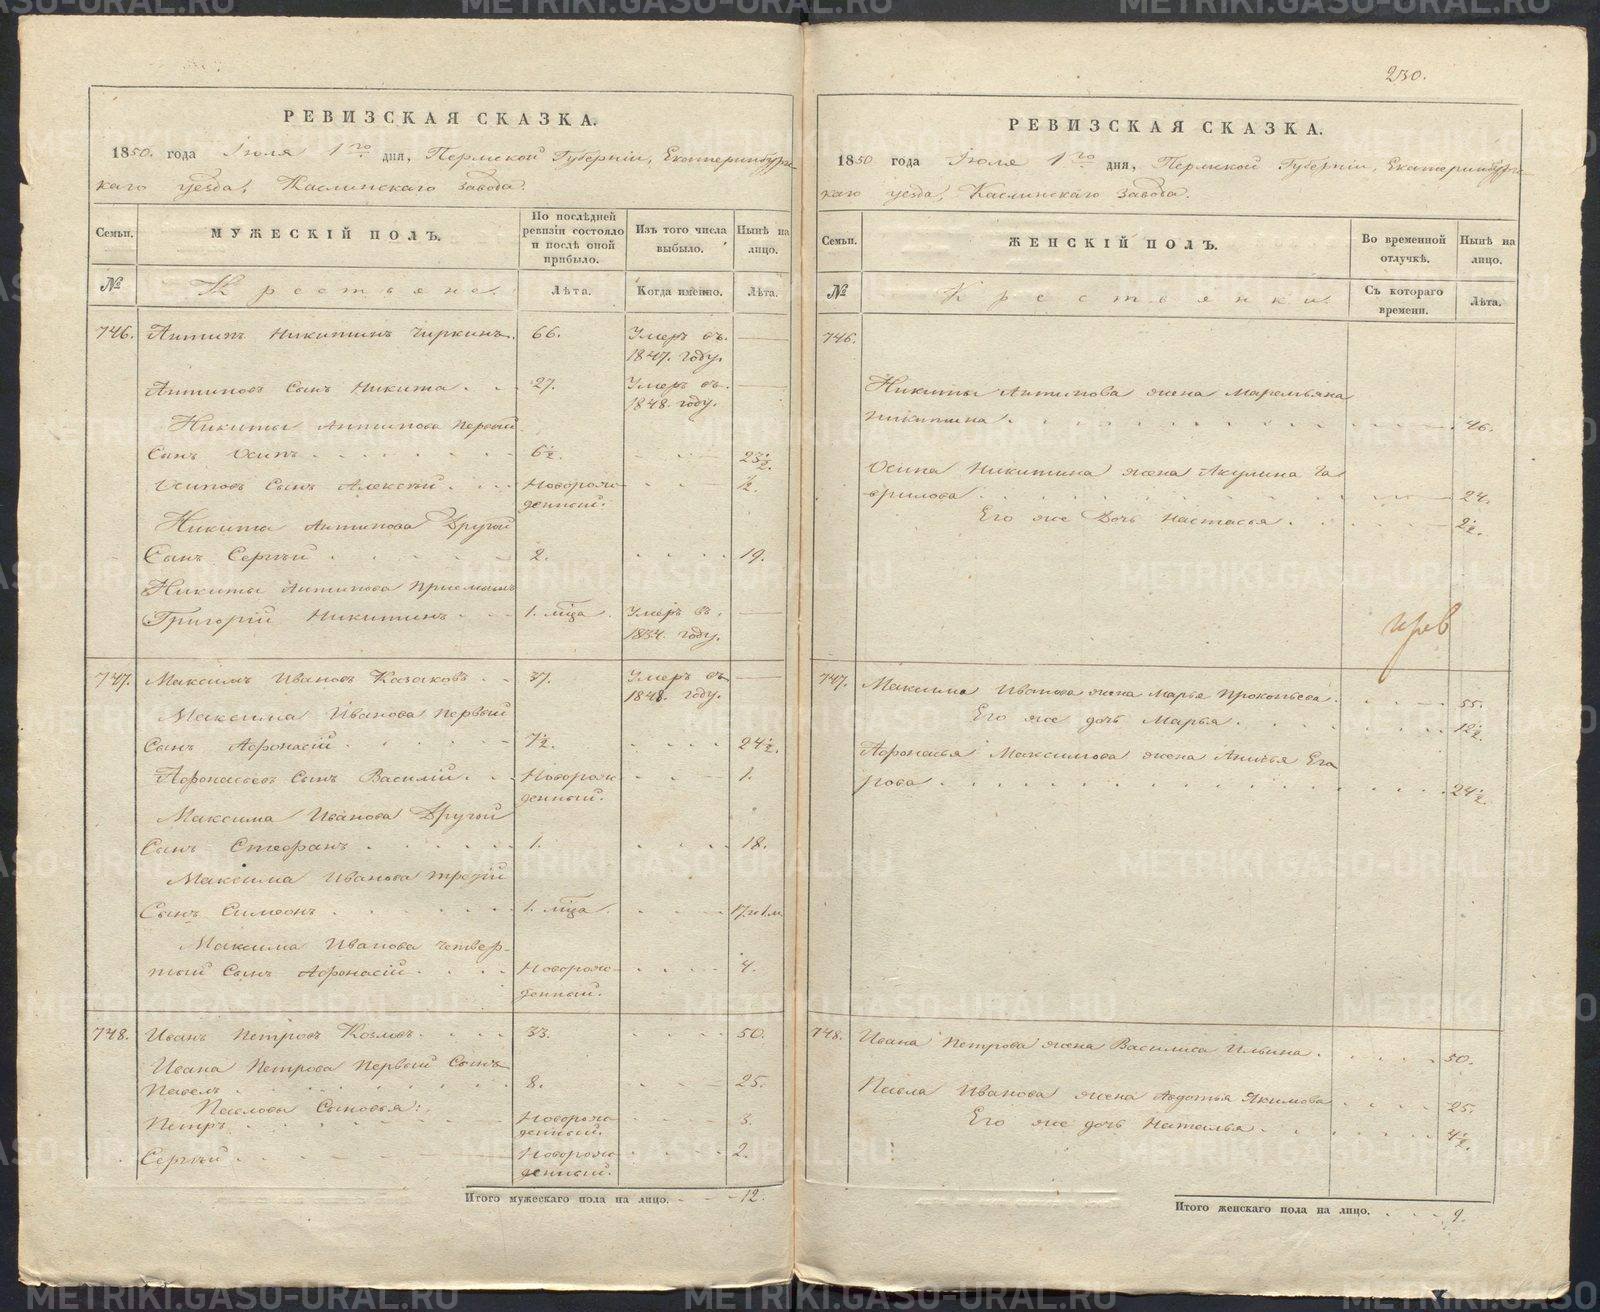 230.
РЕВИЗСКАЯ СКАЗКА.
1850. года Іюля 1го дня, Пермской Губерніи, Екатеринбургс-
каго уезда, Каслинскаго Завода.
Семьи. МУЖЕСКІЙ ПОЛЪ. По послѣдней ревизіи состояло и послѣ оной прибыло. Изъ того числа выбыло. Нынѣ на лицо.
№ Крестьяне. Лѣта. Когда именно. Лѣта.
746. Антипъ Никитинъ Чиркинъ. 66. Умеръ въ. —
1847. году.
Антиповъ Сынъ Никита . . 27. Умеръ въ. —
1848. году.
Никиты Антипова Первый
Сынъ Осипъ . . . . . 6½. 23½.
Осиповъ Сынъ Алексѣй . . Новорож- ½.
денный.
Никита Антипова Другой
Сынъ Сергѣй . . . . . 2. 19.
Никиты Антипова Приемышъ
Григорій Никитинъ . . 1. мца. Умеръ въ. —
1834. году.
747. Максимъ Ивановъ Казаковъ . . 37. Умеръ въ —
1848. году.
Максима Иванова Первый
Сынъ Афонасій . . . . . 7½. 24½.
Афонасьевъ Сынъ Василій . . Новорож- 1.
денный.
Максима Иванова Другой
Сынъ Стефанъ . . . . . 1. 18.
Максима Иванова Третій
Сынъ Симеонъ . . . . . 1. мца. 17. и 1. м
Максима Иванова Четвер-
тый Сынъ Афонасій . . . Новорож- 4.
денный.
748. Иванъ Петровъ Козловъ . . . 33. 50.
Ивана Петрова Первый Сынъ
Павелъ . . . . . 8. 25.
Павловы Сыновья:
Петръ . . . . . Новорож- 3.
денный.
Сергѣй . . . . . Новорож- 2.
денный.
Итого мужескаго пола на лицо. - - - 12.
РЕВИЗСКАЯ СКАЗКА.
1850 года Іюля 1го дня, Пермской Губерніи, Екатеринбургс-
каго уезда, Каслинскаго Завода.
Семьи. ЖЕНСКІЙ ПОЛЪ. Во временной отлучкѣ. Нынѣ на лицо.
№ Крестьянки. Съ котораго времени. Лѣта.
746.
Никиты Антипова жена Маремьяна
Никитина . . . . . 46.
Осипа Никитина жена Акулина Га-
врилова . . . . . 24.
Его же Дочь Настасья . . . 2½.
747. Максима Иванова жена Марья Прокопьева. 55.
Его же дочь Марья . . . 12½.
Афонасья Максимова жена Анисья Его
рова . . . . . 24½.
748. Ивана Петрова жена Василиса Ильина . 50.
Павла Иванова жена Авдотья Якимова 25.
Его же дочь Наталья . . . 4½.
Итого женскаго пола на лицо. . . . 9.
METRIKI.GASO-URAL.RU